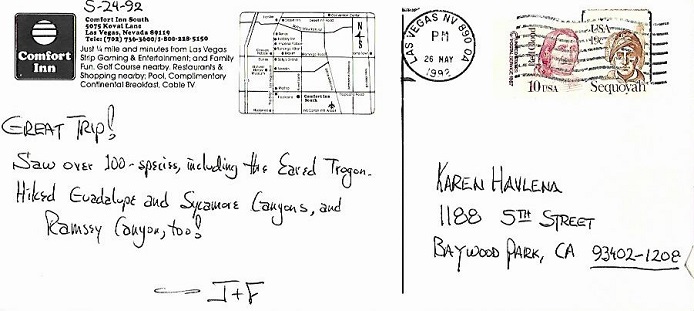 5-24-92
Comfort Inn South
5075 Koval Lane
Las Vegas, Nevada 89119
Tele: (702) 736-3600/1-800-228-5150
Just ¼ mile and minutes from Las Vegas
Strip Gaming & Entertainment; and Family
Fun. Golf Course nearby. Restaurants &
Shopping nearby; Pool, Complimentary
Continental Breakfast, Cable TV
Comfort
Inn
N
S
Comfort Inn
South
GREAT TRIP!
Saw over 100-species, including the Eared Trogon.
Hiked Guadalupe and Sycamore Canyons, and
Ramsey Canyon, too!
J+F
LAS VEGAS NV 890 OA
PM
26 MAY
1992
Red Cloud
10 USA
USA
19c
Sequoyah
KAREN HAVLENA
1188 5TH STREET
BAYWOOD PARK, CA 93402-1208